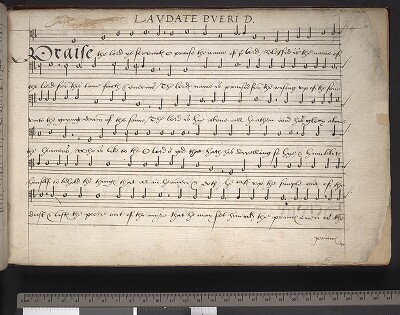 LAUDATE PUERI D.
Praise the lord ye servants O praise the name of ye lord Blessed is the name of
the lord for this time forth & evermore The lords name is praised for the rising up of the sune
unto the going down of the same The lord is hye above all heathen and his glory above
the heavens Who is like to the O lord o god that hath his dwelling so hye & humbleth
himself to behold the things that ar in heaven & erth he taks up the simple out of the
dust & lifts the pore out of the myre that he may set him with the princes even with the
princes